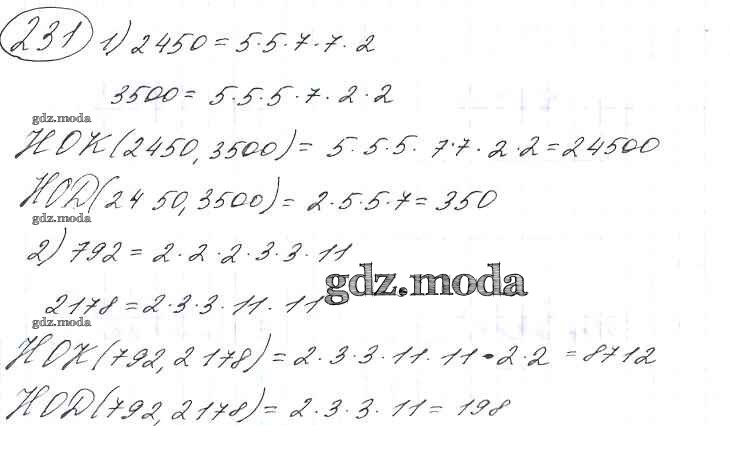 231 1) 2450 = 5·5·7·7·2
3500 = 5·5·5·7·2·2
gdz.moda
НОК(2450, 3500) = 5·5·5·7·7·2·2 = 24500
НОД(2450, 3500) = 2·5·5·7 = 350
gdz.moda
2) 792 = 2·2·2·3·3·11
gdz.moda
2178 = 2·3·3·11·11
gdz.moda
НОК(792, 2178) = 2·3·3·11·11·2·2 = 8712
НОД(792, 2178) = 2·3·3·11 = 198